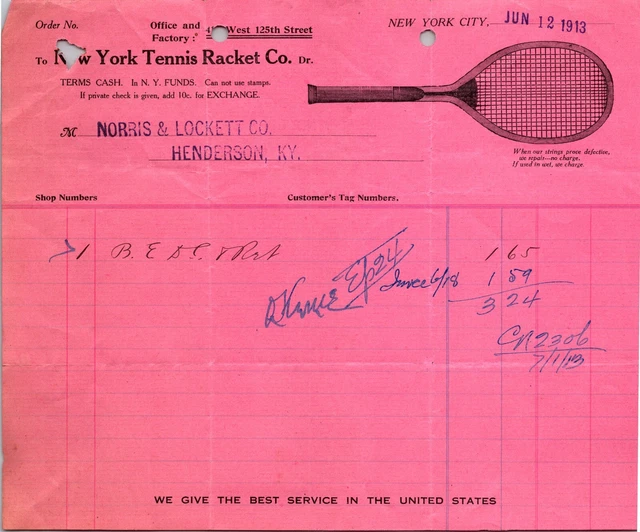 Order No.
Office and Factory: West 125th Street
NEW YORK CITY, JUN 12 1913
To New York Tennis Racket Co. Dr.
TERMS CASH. In N. Y. FUNDS. Can not use stamps.
If private check is given, add 10c. for EXCHANGE.
M NORRIS & LOCKETT CO.
HENDERSON, KY.
When our strings prove defective,
we repair—no charge.
If used in wet, we charge.
Shop Numbers
Customer's Tag Numbers.
1 B. E D C. & 1 65
June 6/18 1 59
3 24
2306
7/1/13
WE GIVE THE BEST SERVICE IN THE UNITED STATES